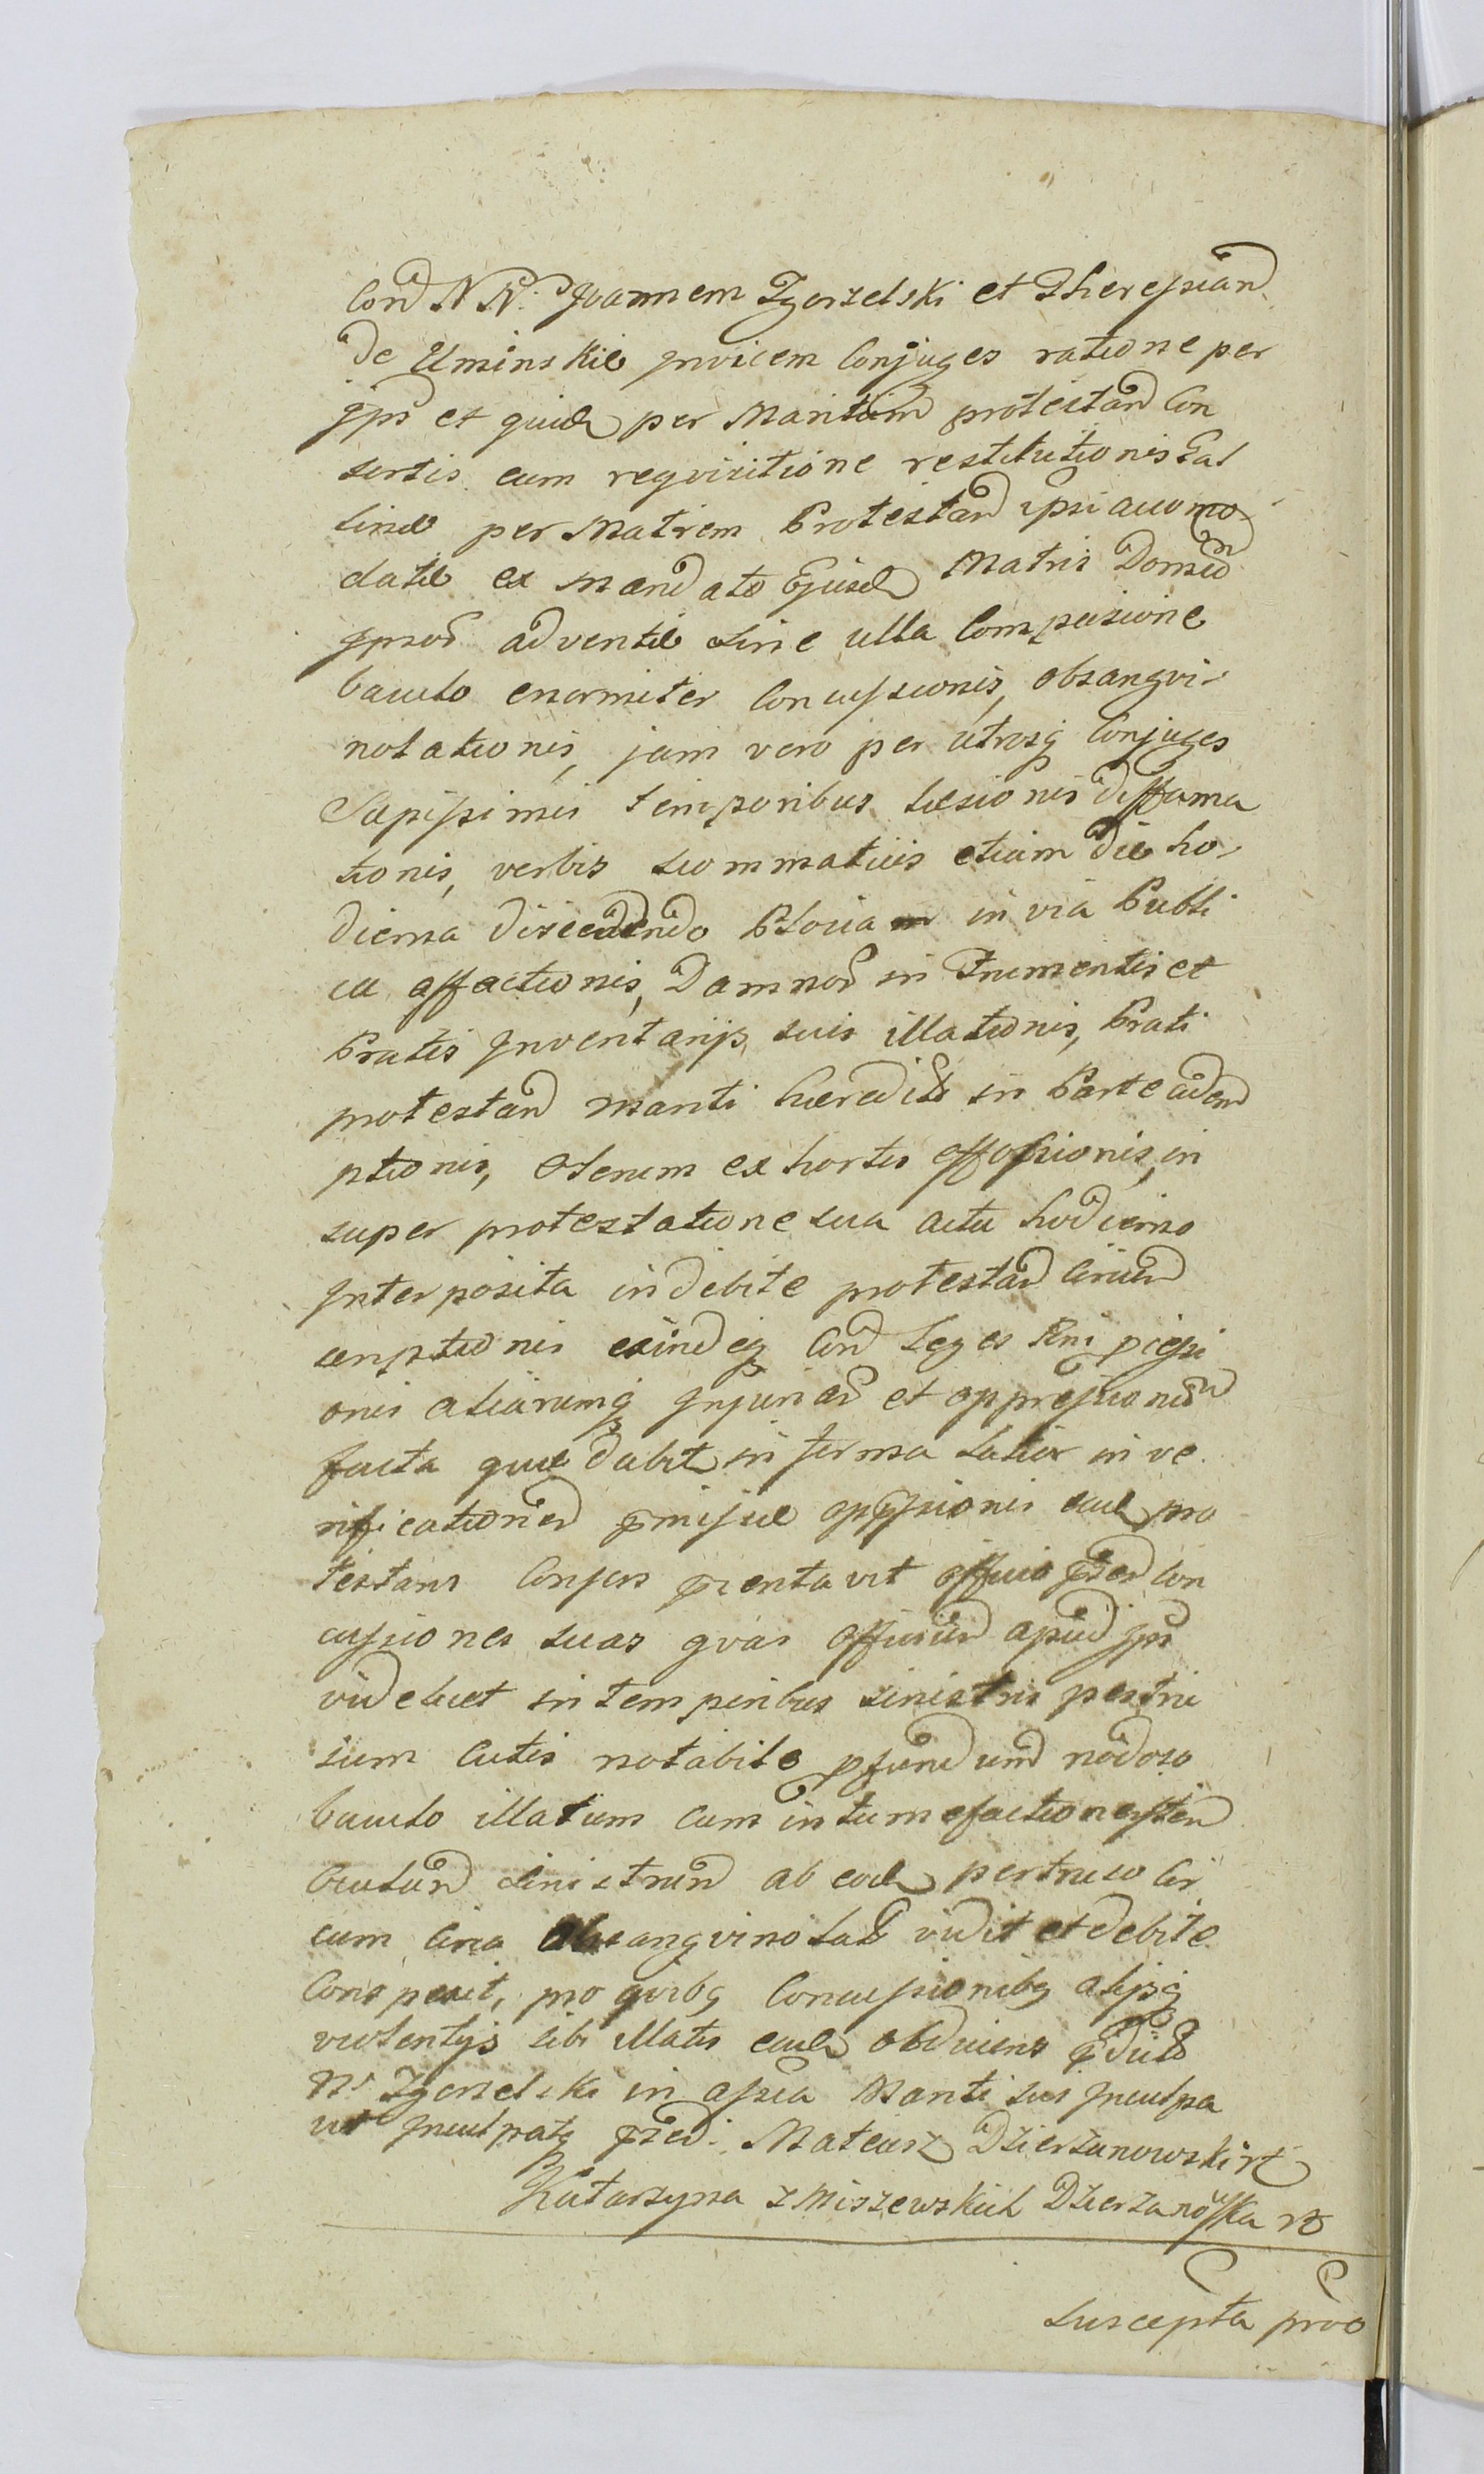 Con NN. Joannem Zgorzelski et Theressian
de Uminskie invicem Conjuges ratione per
ips et quid per Maritum protestan Con
sortis cum reqvisitione restitutionis Gal
linæ per Matrem Protestan ipsi accomo-
datæ ex mandato Ejusd Matris Domum
ipsor adventæ sine ulla Compassione
baculo enormiter Concussionis, obsangvi-
nolationis, jam vero per utrosq Conjuges
Sæpissimis temporibus læsionis diffama
tionis, verbis stommaticis etiam die ho-
dierna discedendo Plocia in via Publi
ca affectionis, Damnor in Frumentis et
Pratis Inventarijs suis illationis, Prati
protestan mariti hæredit in Parte adem
ptionis, Olerum ex hortis effossionis, in
super protestatione sua actu hodierno
Interposita indebite protestan
ceptionis exindeq Con Leges Rni
onis aliarumq Injuriar et oppressionum
facta quæ dabit in forma latior in ve
rificationem pmissæ oppssionis ead pro
testans Conjux pzentavit officio pzen Con
cussiones suas qvas officium apud ips
videlicet in temporibus sinistris pertri
sum cutis notabile pfundum nodoso
baculo illatum cum intumefactione,
Oculum sinistrum ab eod pertriso Cir
cum circa obsangvinolat vidit et debite
Conspexit, pro qvibq Concussionibq alijsq
violentijs sibi illatis ead obducens
N. Zgorzelski in assa Mariti sui Inculpa
vit Inculpatq pzen. Mateusz Dzierzanowski
Katarzyna z Miszewskich Dzierzanowska
Suscepta pro